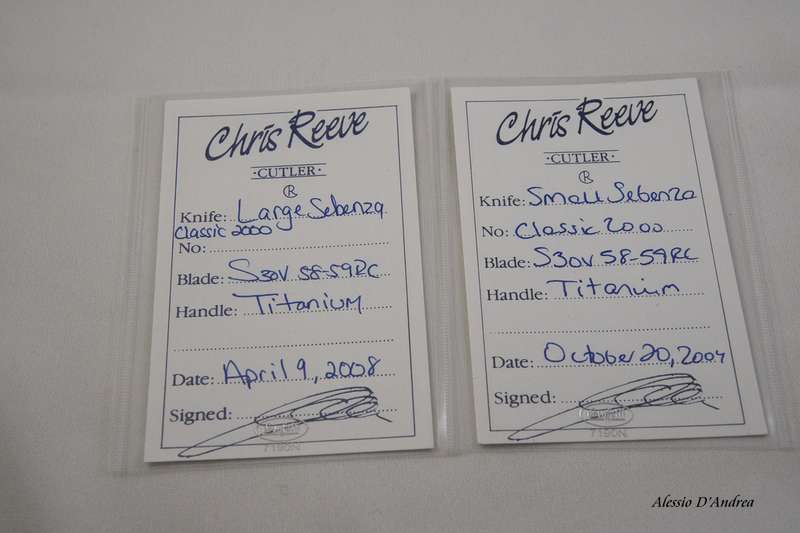 Chris Reeve
·CUTLER·
®
Knife: Large Sebenza
Classic 2000
No:
Blade: S30V 58-59RC
Handle: Titanium
Date: April 9, 2008
Signed:
7190N
Chris Reeve
·CUTLER·
®
Knife: Small Sebenza
No: Classic 2000
Blade: S30V 58-59RC
Handle: Titanium
Date: October 20, 2004
Signed:
7190N
Alessio D'Andrea